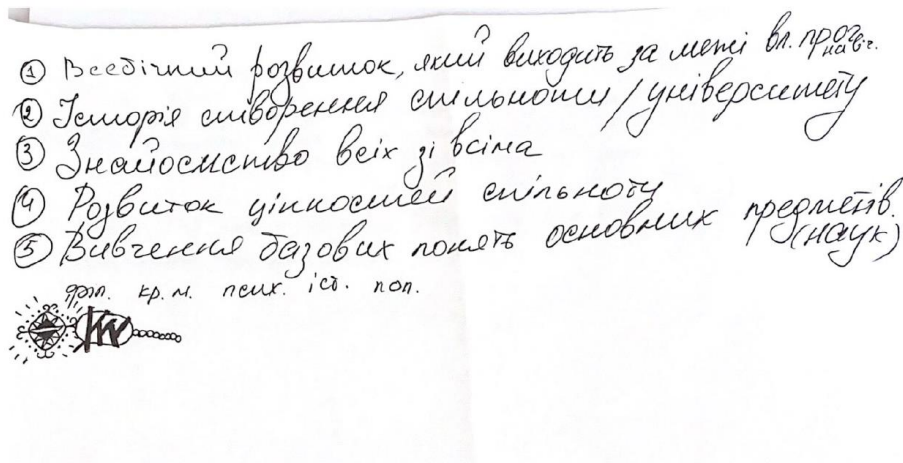 ① Всебічний розвиток, який виходить за межі вл. прогр.
навч.
② Історія створення спільноти / університету
③ Знайомство всіх зі всіма
④ Розвиток цінностей спільноти
⑤ Вивчення базових понять основних предметів.
(наук)
кр. м. псих. іст. пол.